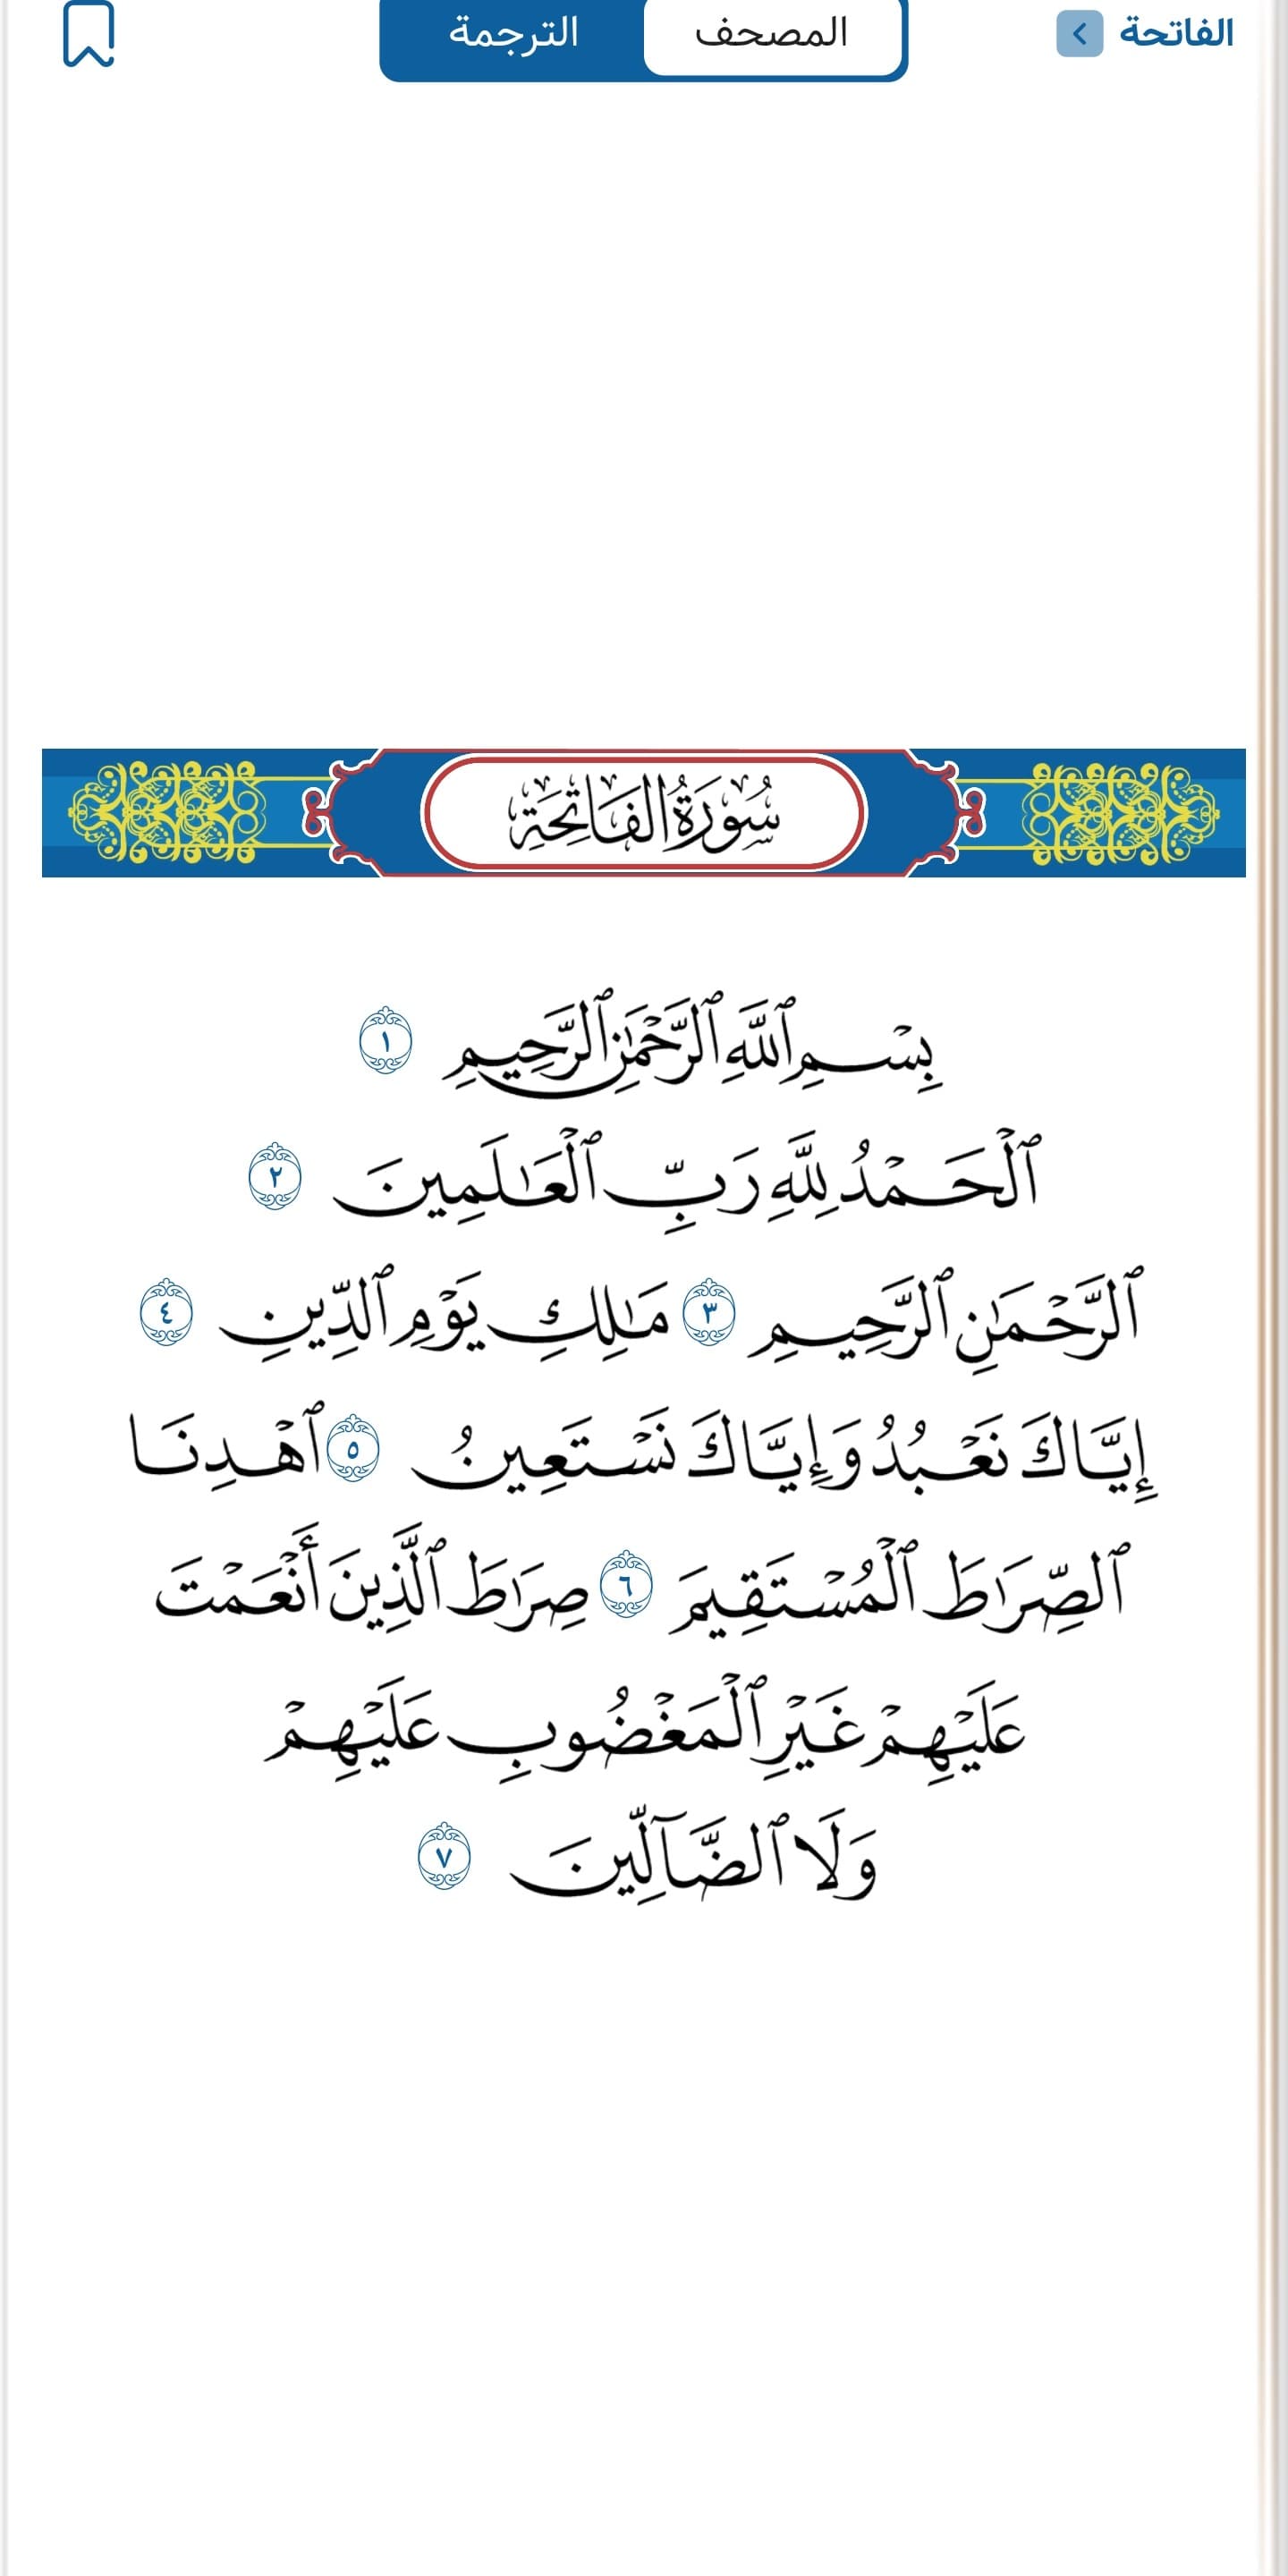 الفاتحة
المصحف
الترجمة
سُورَةُ الفَاتِحَةِ
بِسْمِ ٱللَّهِ ٱلرَّحْمَٰنِ ٱلرَّحِيمِ ١
ٱلْحَمْدُ لِلَّهِ رَبِّ ٱلْعَٰلَمِينَ ٢
ٱلرَّحْمَٰنِ ٱلرَّحِيمِ ٣ مَٰلِكِ يَوْمِ ٱلدِّينِ ٤
إِيَّاكَ نَعْبُدُ وَإِيَّاكَ نَسْتَعِينُ ٥ ٱهْدِنَا
ٱلصِّرَٰطَ ٱلْمُسْتَقِيمَ ٦ صِرَٰطَ ٱلَّذِينَ أَنْعَمْتَ
عَلَيْهِمْ غَيْرِ ٱلْمَغْضُوبِ عَلَيْهِمْ
وَلَا ٱلضَّآلِّينَ ٧